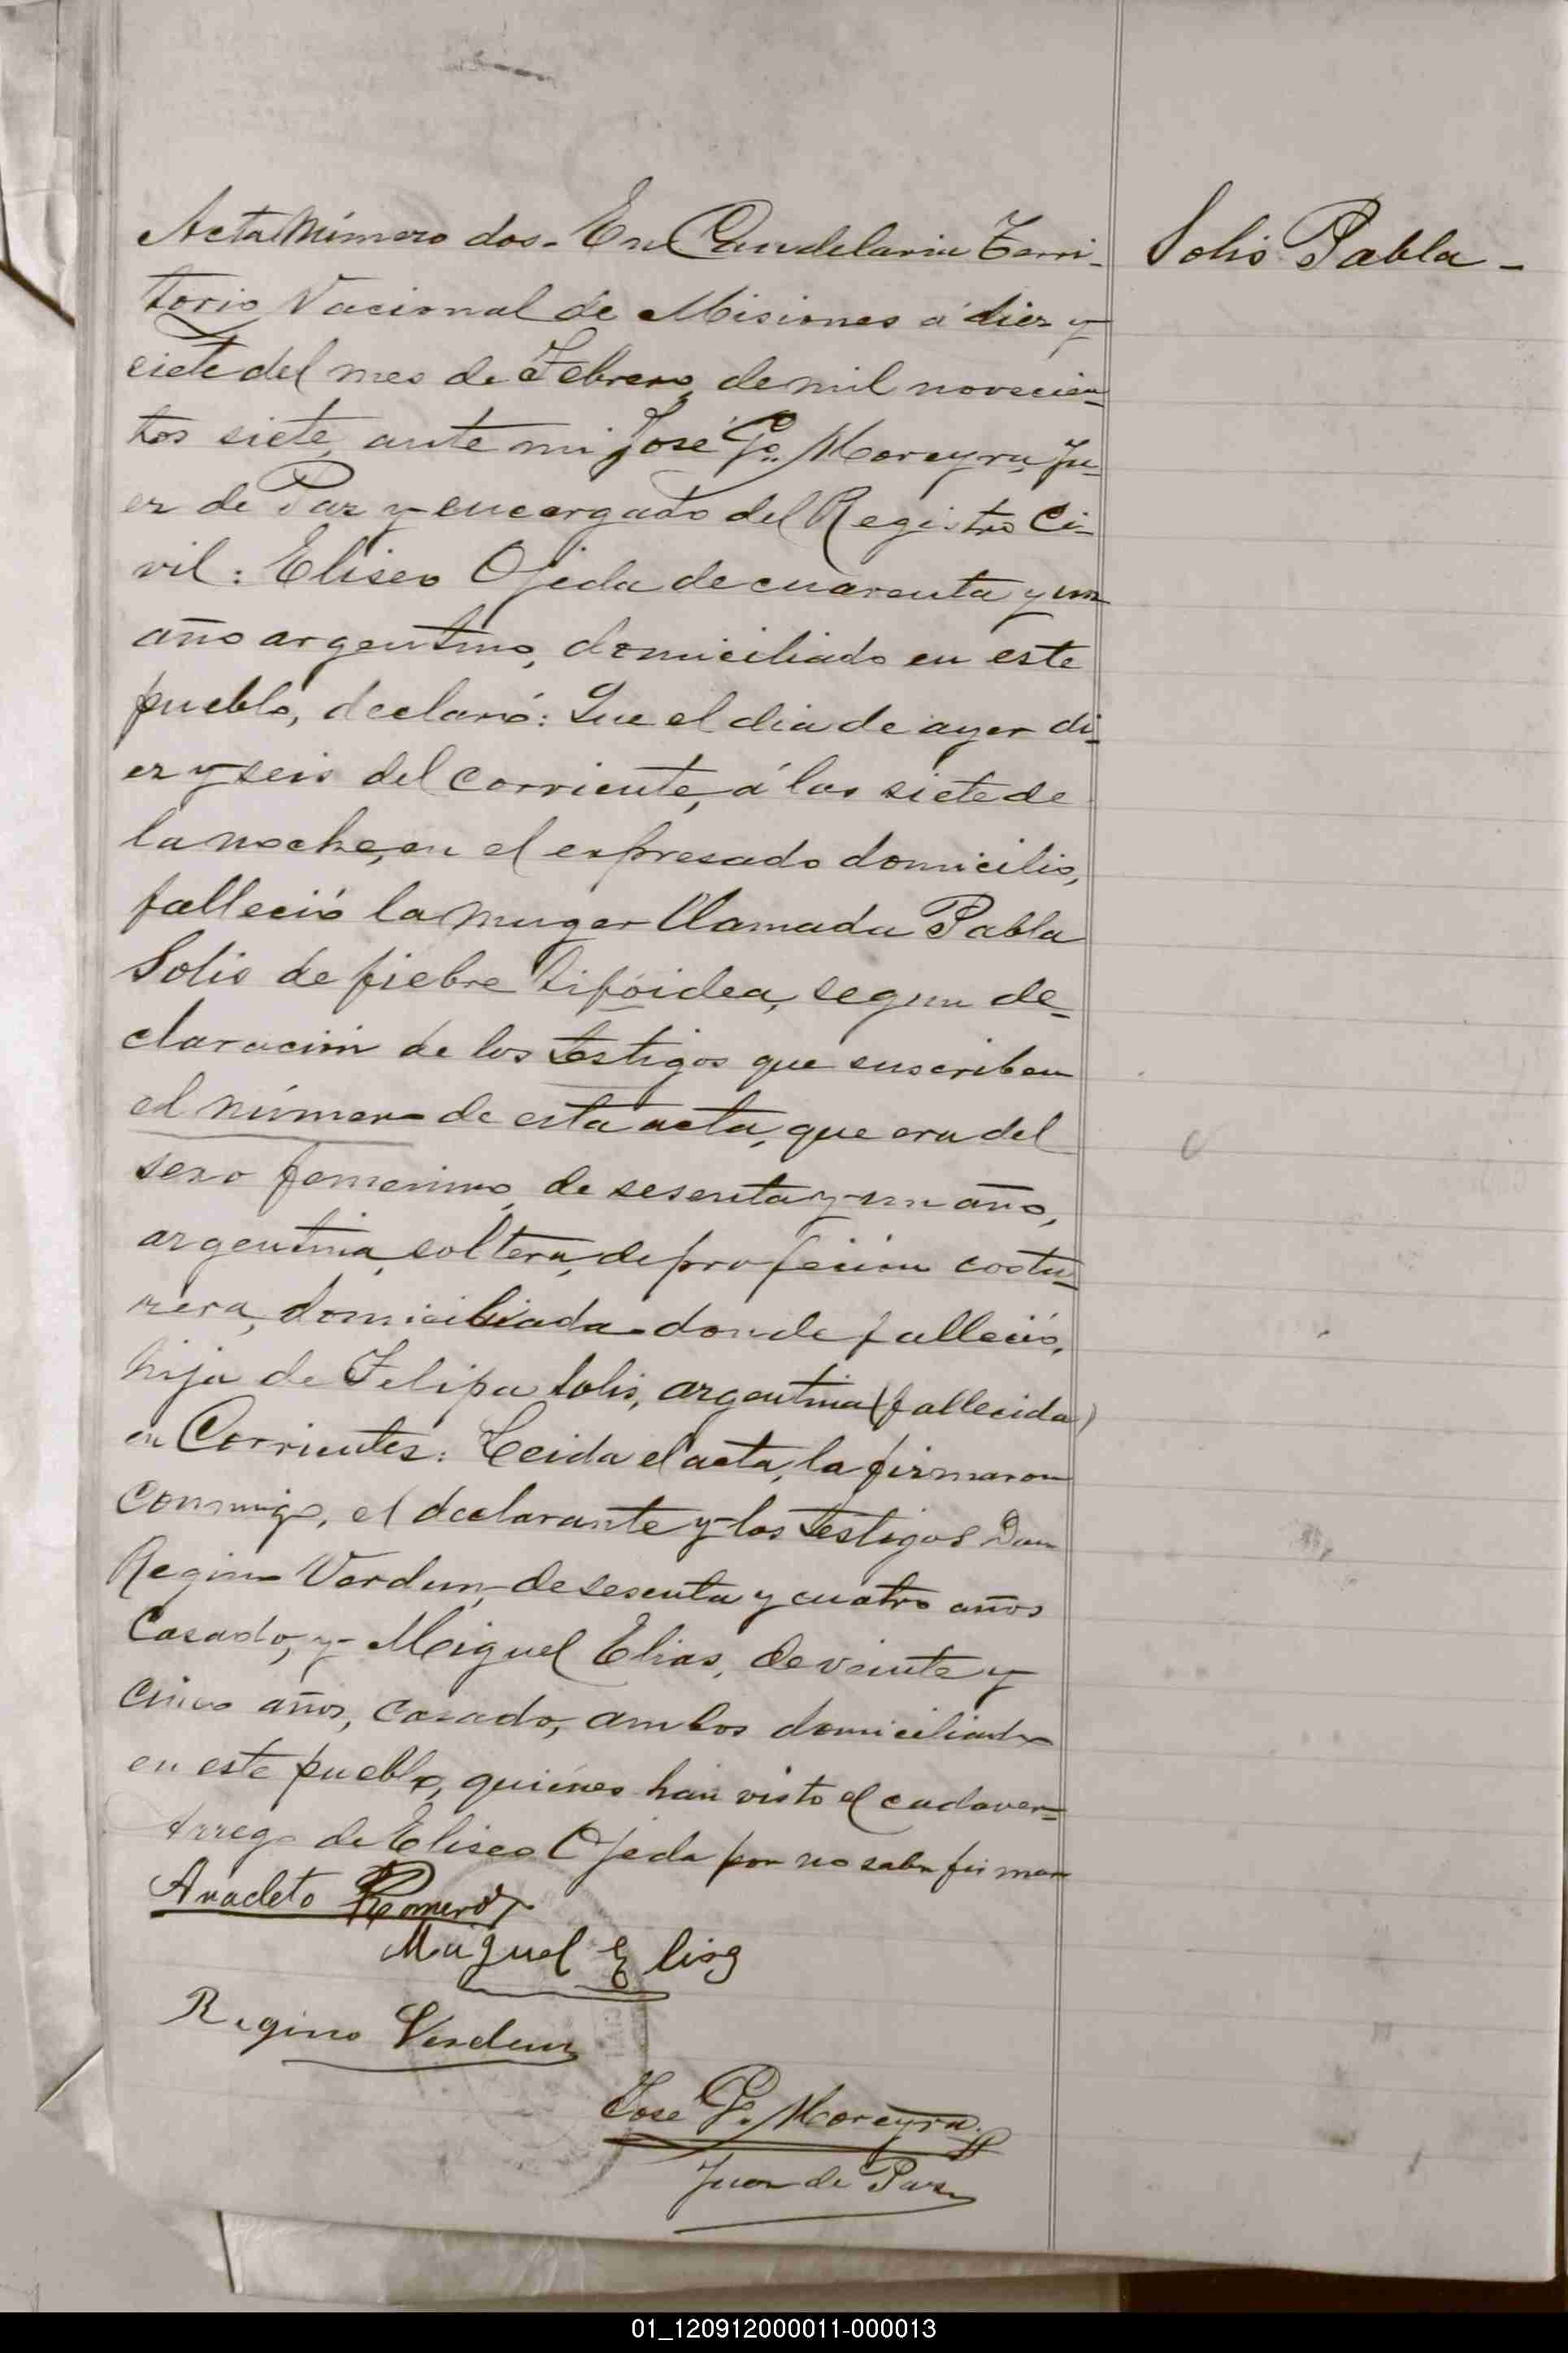 Acta Número dos. En Candelaria Terri-
Solis Pabla -
torio Nacional de Misiones á diez y
siete del mes de Febrero, de mil novecien-
tos siete, ante mi José G. Moreyra, Ju-
ez de Paz y encargado del Registro Ci-
vil: Eliseo Ojeda de cuarenta y un
año argentino, domiciliado en este
pueblo, declaró: Que el dia de ayer di-
ez y seis del corriente, á las siete de
la noche, en el expresado domicilio,
falleció la muger llamada Pabla
Solis de fiebre tifóidea, segun de-
claración de los testigos que suscriben
el número de esta acta, que era del
sexo femenino, de sesenta y un año,
argentina, soltera, de profecion costu-
rera, domiciliada donde falleció,
hija de Felipa Solis, argentina (fallecida)
en Corrientes: Leida el acta, la firmaron
conmigo, el declarante y los testigos Don
Regino Verdun, de sesenta y cuatro años
Casado, y Miguel Elias, de veinte y
cinco años, casado, ambos domiciliados
en este pueblo, quiénes han visto el cadaver=
Arrego de Eliseo Ojeda por no saber firmar
Anacleto Romero
Miguel Elias
Regino Verdun
José G. Moreyra
Juez de Paz
01_120912000011-000013